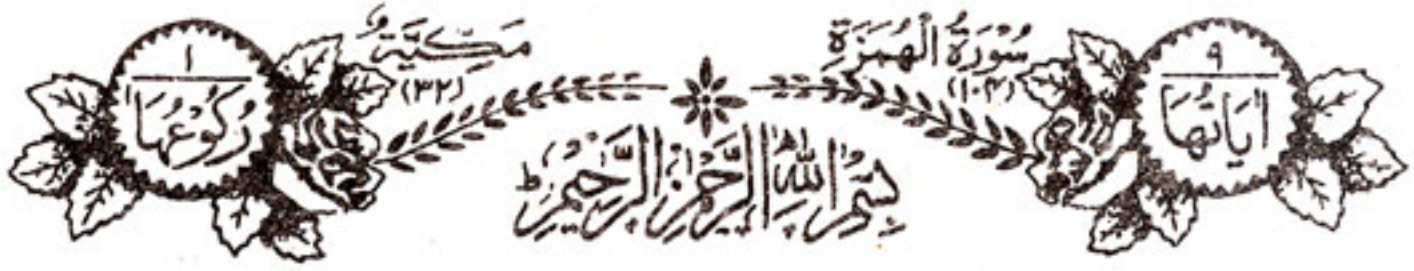 ۹
اٰیَاتُهَا
سُوْرَةُ الْهُمَزَةِ
(۱۰۴)
مَكِّيَّةٌ
(۳۲)
۱
رُكُوْعُهَا
بِسْمِ اللّٰهِ الرَّحْمٰنِ الرَّحِيْمِ ؕ